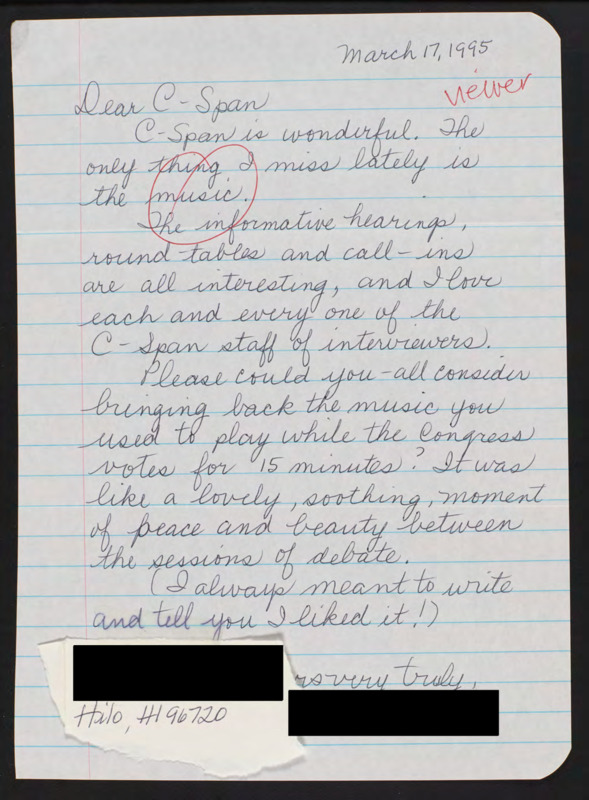 March 17, 1995
viewer
Dear C-Span
C-Span is wonderful. The
only thing I miss lately is
the music.
The informative hearings,
round-tables and call-ins
are all interesting, and I love
each and every one of the
C-Span staff of interviewers.
Please could you-all consider
bringing back the music you
used to play while the Congress
votes for 15 minutes? It was
like a lovely, soothing, moment
of peace and beauty between
the sessions of debate.
(I always meant to write
and tell you I liked it!)
rs very truly,
Hilo, HI 96720